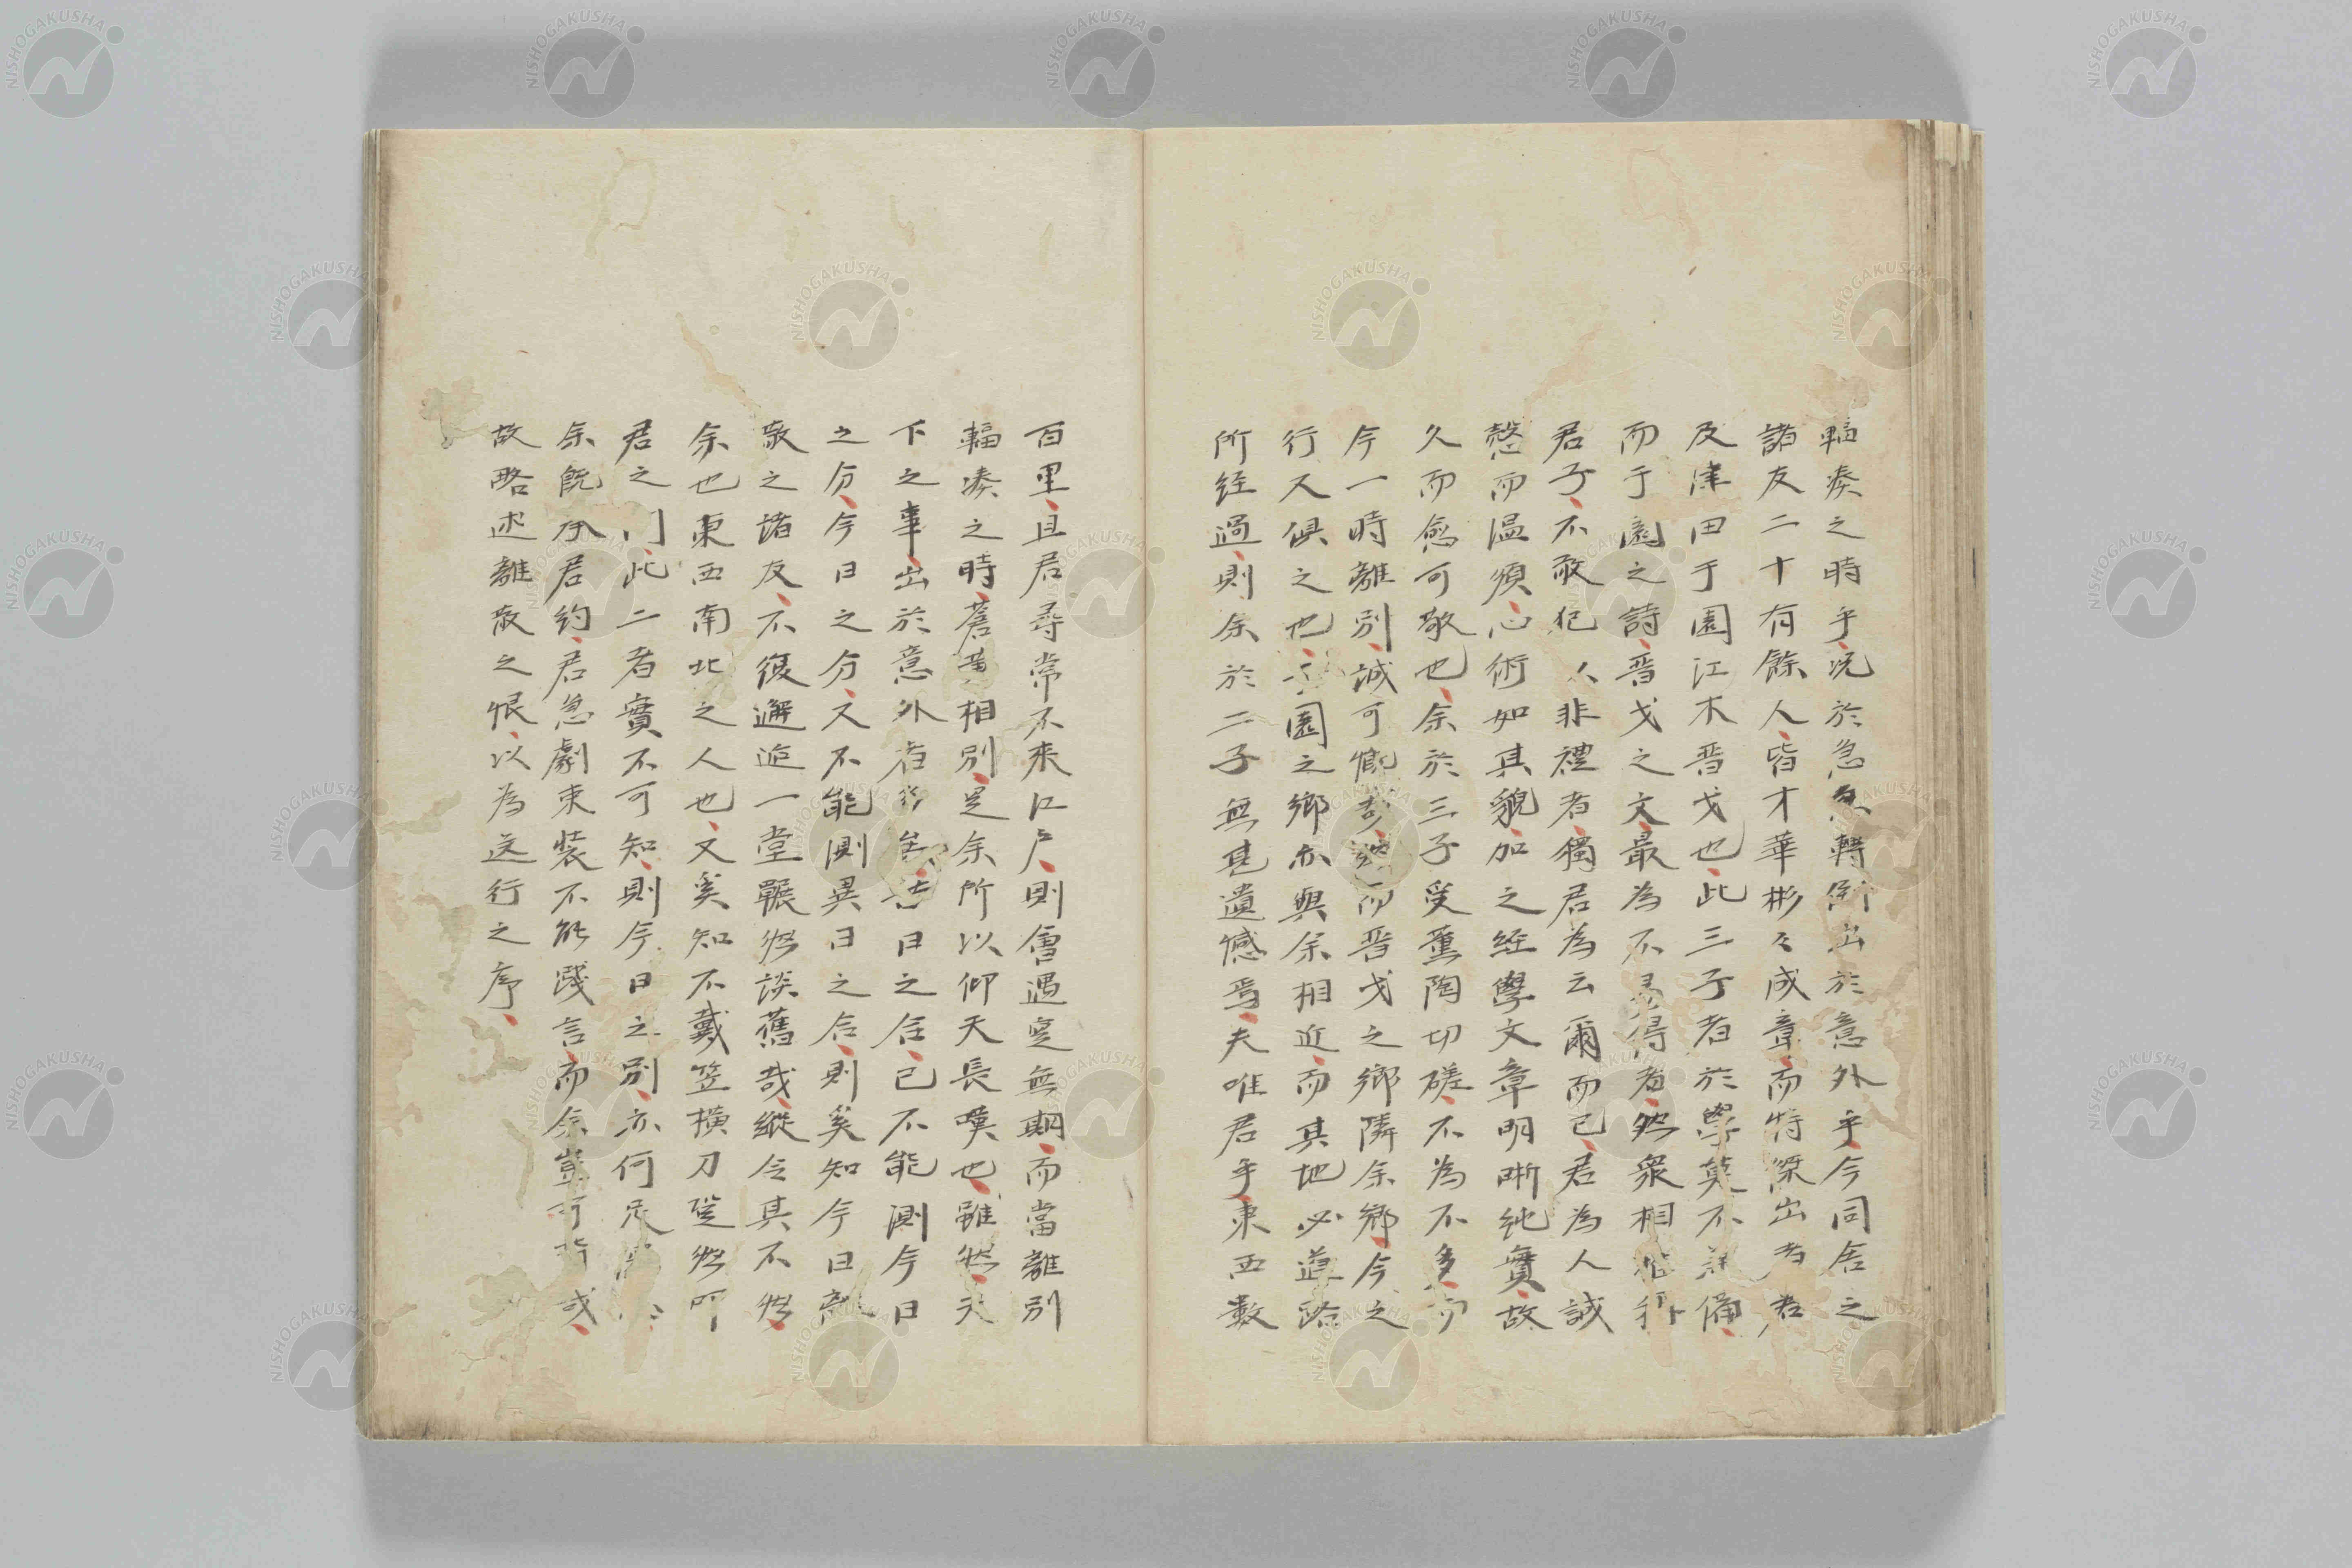 輻湊之時乎況於急急轉倒出於意外乎今同居之
諸友二十有餘人皆才華彬々成章而特傑出者君
及津田于園江木晋戈也此三子者於學莫不兼備
而于園之詩晋戈之文最為不易得者然衆相推稱
君子不敢犯人非禮者獨君為云爾而已君為人誠
愨而温須心術如其貌加之經學文章明晰純實故
久而愈可敬也余於三子受薰陶切磋不為不多而
今一時離別誠可慨然而晋戈之鄉隣余鄉今之
行又俱之也于園之鄉亦與余相近而其地必道路
所経過則余於二子無甚遺憾焉夫唯君乎東西數
百里且君尋常不来江戸則會遇寔無期而當離別
輻湊之時蒼黄相別是余所以仰天長嘆也雖然天
下之事出於意外者日之合已不能測今日
之分今日之分又不能測異日之合則奚知今日離
散之諸友不復邂逅一堂驟然談舊哉縱令其不然
余也東西南北之人也又奚知不戴笠横刀突然叩
君之門此二者實不可知則今日之別亦何足
余既承君約君急劇束装不能踐言而余豈可背哉
故略述離散之恨以為送行之序
NISHOGAKUSHA